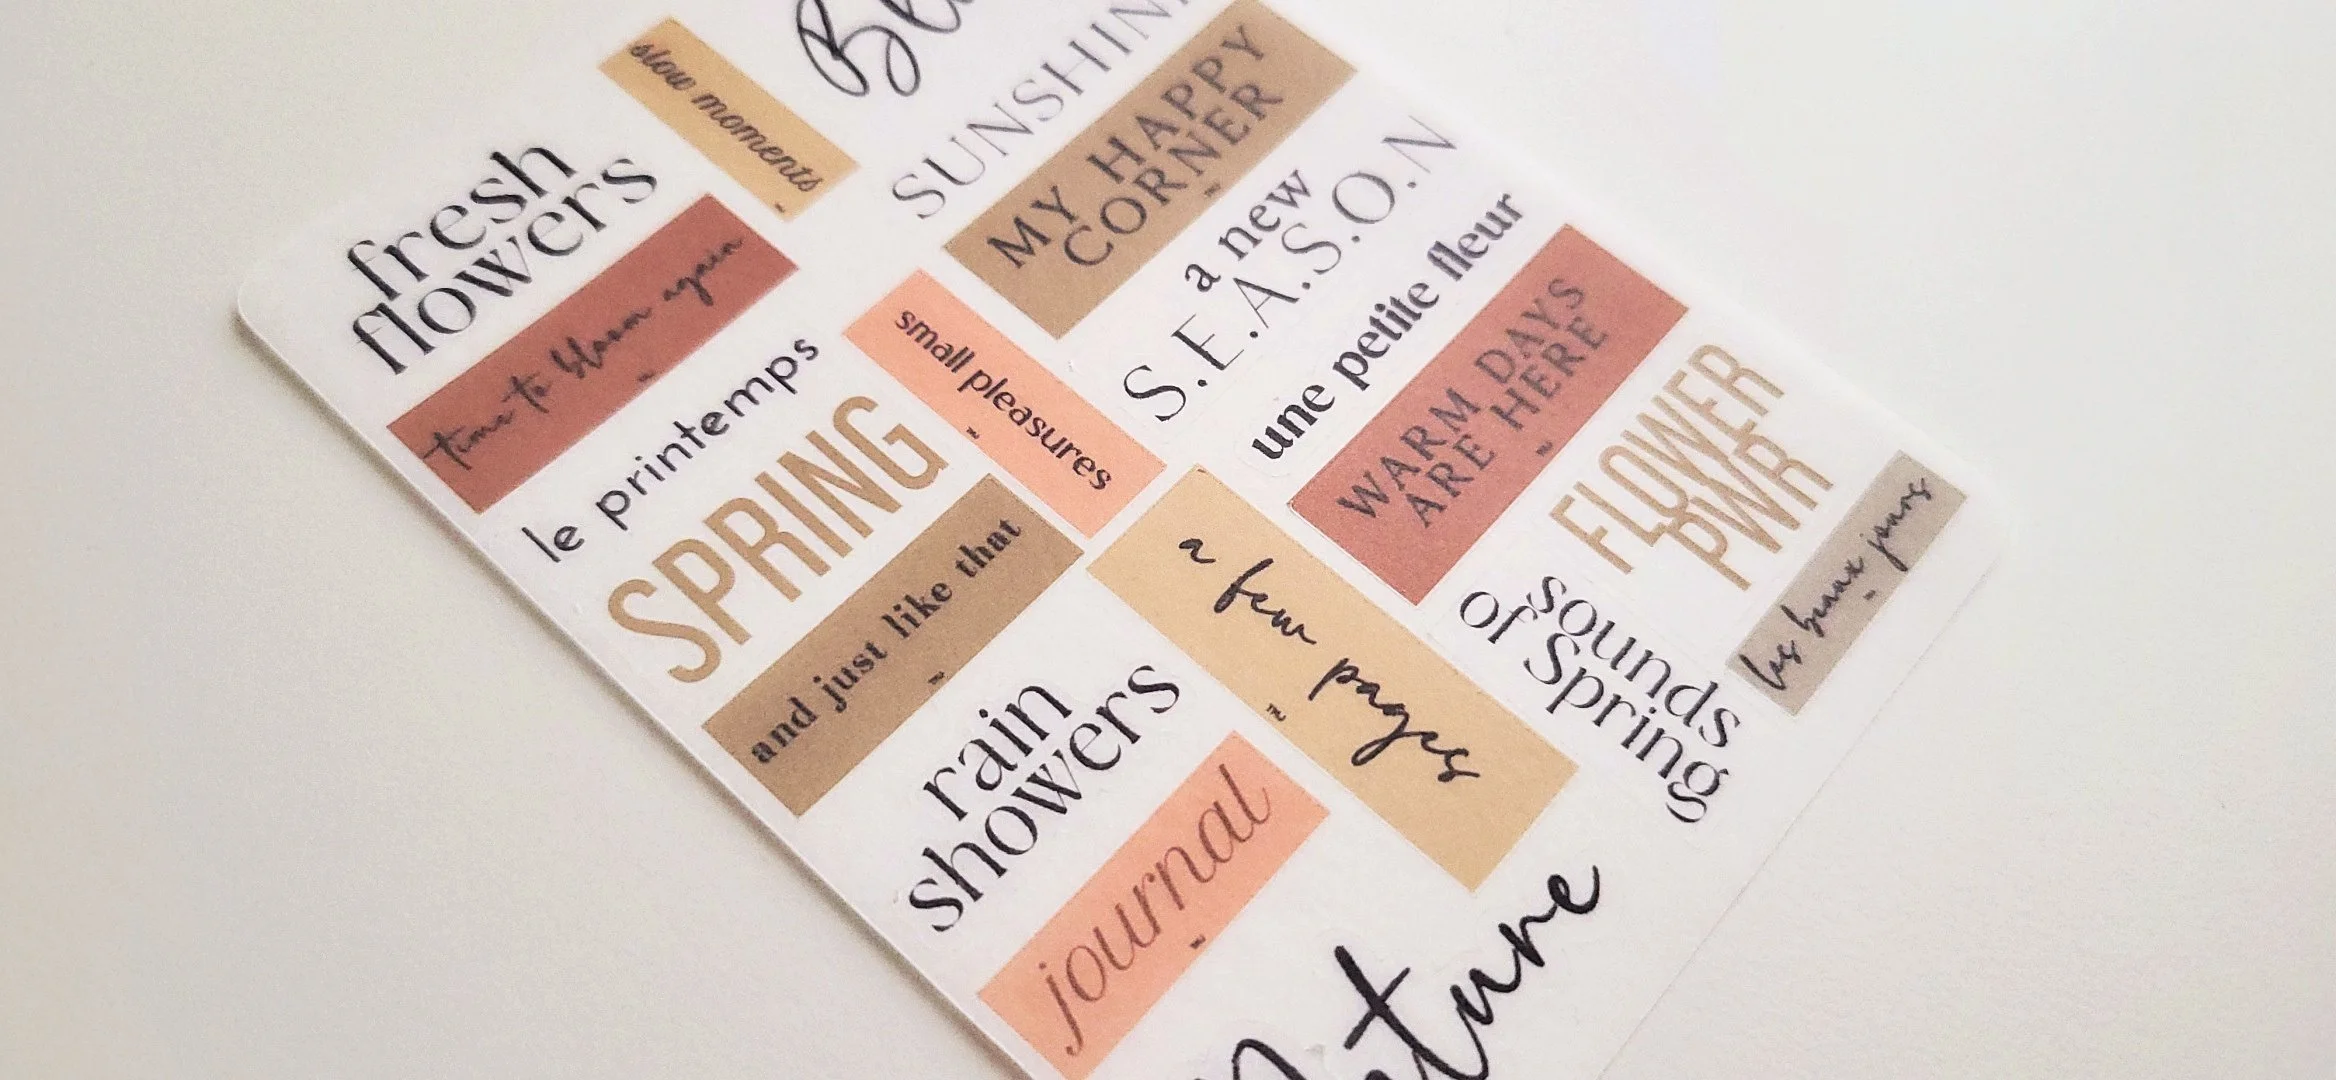 slow moments
SUNSHIN
MY HAPPY
CORNER
fresh
flowers
time to bloom again
a new
S.E.A.S.O.N
une petite fleur
small pleasures
le printemps
SPRING
WARM DAYS
ARE HERE
FLOWER
PWR
and just like that
a few pages
les beaux jours
sounds
of Spring
rain
showers
journal